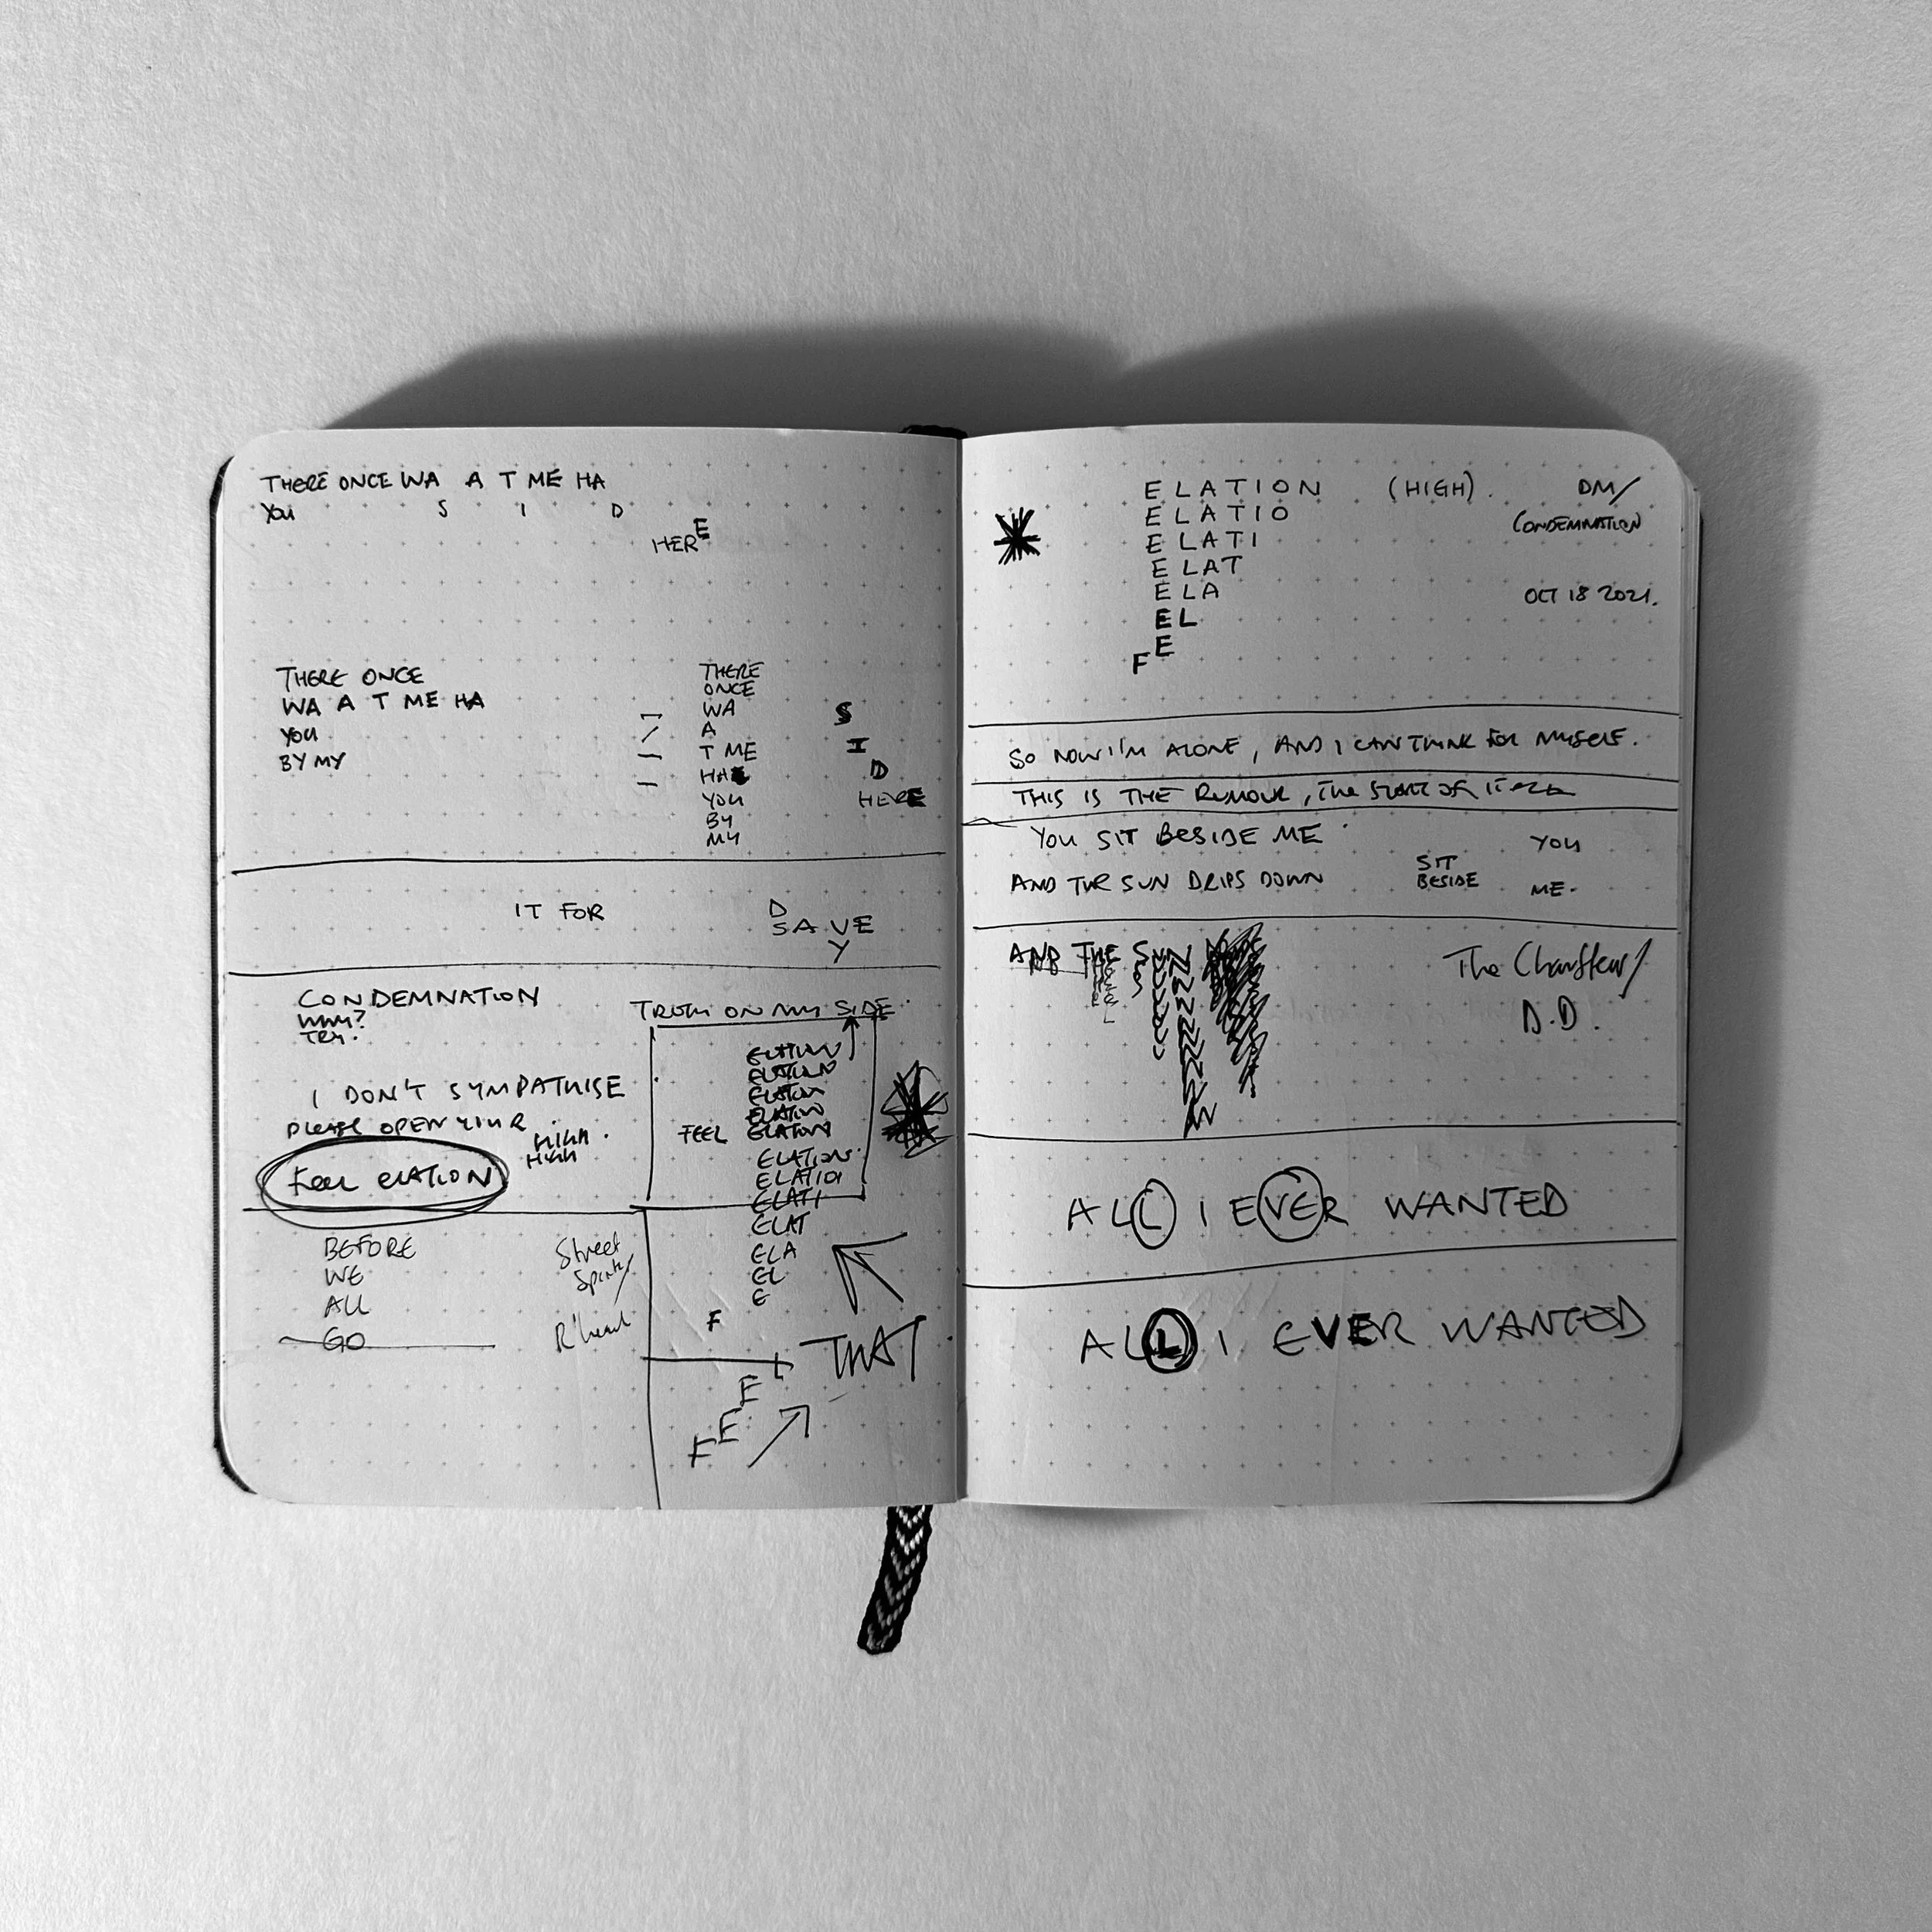 THERE ONCE WA A T ME HA
YOU S I D
HERE
THERE ONCE
WA A T ME HA
YOU
BY MY
THERE
ONCE
WA S
A
T ME I
HA D
YOU HERE
BY
MY
IT FOR
D
SAVE
Y
CONDEMNATION
WHY?
TRY.
I DON'T SYMPATHISE
PLEASE OPEN YOUR
HIGH.
HIGH
FEEL ELATION
BEFORE
WE
ALL
GO
Street
Spirit/
R'head
TRUTH ON MY SIDE.
ELATION
ELATION
ELATION
ELATION
FEEL ELATION
ELATION
ELATIO
ELATI
ELAT
ELA
EL
E
F
THAT
L
E
E
F
ELATION (HIGH).
ELATIO
ELATI
ELAT
ELA
EL
E
F
DM/
CONDEMNATION
OCT 18 2021.
SO NOW I'M ALONE, AND I CAN THINK FOR MYSELF.
THIS IS THE RUMOUR, THE START OF IT ALL
YOU SIT BESIDE ME
AND THE SUN DRIPS DOWN
YOU
SIT
BESIDE
ME.
AND THE SUN
The Chauffeur/
D.D.
ALL I EVER WANTED
ALL I EVER WANTED